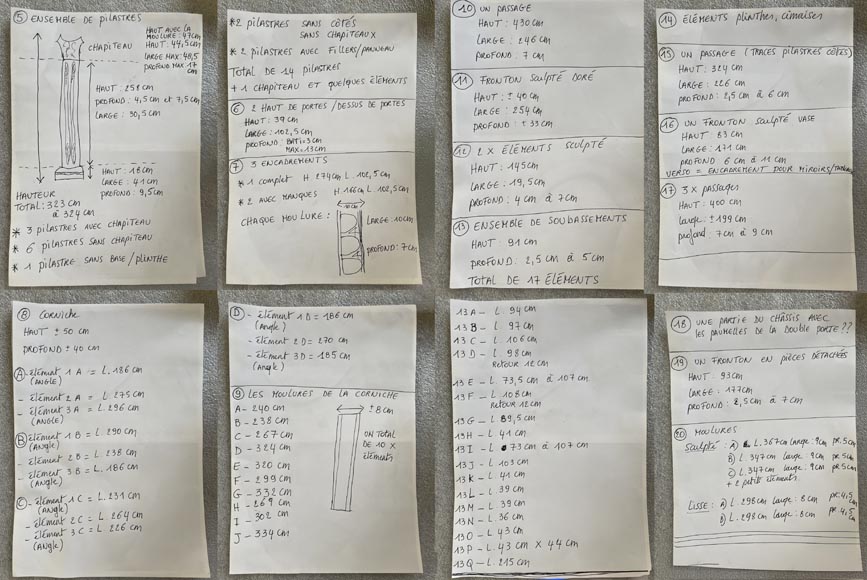 ⑤ ENSEMBLE DE PILASTRES
HAUT AVEC LA
MOULURE: 47cm
HAUT: 44,5cm
LARGE MAX: 48,5
PROFOND MAX 17
cm
CHAPITEAU
HAUT: 258 cm
PROFOND: 4,5cm et 7,5cm
LARGE: 30,5cm
HAUT: 18cm
LARGE: 41cm
PROFOND: 9,5cm
HAUTEUR
TOTAL: 323 cm
à 324 cm
* 3 PILASTRES AVEC CHAPITEAU
* 6 PILASTRES SANS CHAPITEAU
* 1 PILASTRE SANS BASE/PLINTHE
*2 PILASTRES SANS CÔTÉS
SANS CHAPITEAUX
*2 PILASTRES AVEC FILLERS/PANNEAU
TOTAL DE 14 PILASTRES
+ 1 CHAPITEAU ET QUELQUES ÉLÉMENTS
⑥ 2 HAUT DE PORTES/DESSUS DE PORTES
HAUT: 39cm
LARGE: 102,5cm
PROFOND: BÂTI=3cm
MAX=13cm
⑦ 3 ENCADREMENTS
* 1 complet H. 274cm L. 102,5cm
* 2 AVEC MANQUES H.166cm L. 102,5cm
CHAQUE MOULURE:
10cm
LARGE: 10cm
PROFOND: 7cm
⑩ UN PASSAGE
HAUT: 430cm
LARGE: 246cm
PROFOND: 7cm
⑪ FRONTON SCULPTÉ DORÉ
HAUT: ± 40cm
LARGE: 254cm
PROFOND: ± 33cm
⑫ 2 X ÉLÉMENTS SCULPTÉ
HAUT: 145cm
LARGE: 19,5cm
PROFOND: 4cm à 7cm
⑬ ENSEMBLE DE SOUBASSEMENTS
HAUT: 91cm
PROFOND: 2,5cm à 5cm
TOTAL DE 17 ÉLÉMENTS
⑭ ÉLÉMENTS plinthes, cimaises
⑮ UN PASSAGE (TRACES PILASTRES CÔTÉS)
HAUT: 324
LARGE: 226
PROFOND: 2,5cm à 6cm
⑯ UN FRONTON SCULPTÉ VASE
HAUT: 83cm
LARGE: 171cm
PROFOND 6cm à 11cm
VERSO = ENCADREMENT POUR MIROIRS/
⑰ 3 X passages
HAUT: 400cm
large: ±199cm
profond: 7cm à 9cm
⑧ CORNICHE
HAUT ± 50 cm
PROFOND ± 40 cm
Ⓐ - élément 1A = L.186 cm
(ANGLE)
- élément 2A = L. 275cm
- élément 3A = L.296cm
(ANGLE)
Ⓑ - élément 1B = L.290 cm
(Angle)
- élément 2B = L.238 cm
- élément 3B = L.186 cm
(Angle)
Ⓒ - élément 1C = L.231 cm
(Angle)
- élément 2C = L.264cm
- élément 3C = L.226 cm
(Angle)
Ⓓ - élément 1D = 186cm
(Angle)
- élément 2D = 270 cm
- élément 3D = 185cm
(Angle)
⑨ LES MOULURES DE LA CORNICHE
A- 240cm
B- 238cm
C- 267cm
D- 324cm
E- 320cm
F- 299cm
G- 332cm
H- 269 cm
I- 302 cm
J- 334cm
±8cm
UN TOTAL
DE 10 X
éléments
13 A - L. 94cm
13 B - L. 97cm
13 C - L. 106cm
13 D - L. 98cm
RETOUR 12cm
13 E - L. 73,5cm à 107cm
13 F - L. 108cm
RETOUR 12cm
13 G - L. 89,5cm
13 H - L. 41cm
13 I - L. 73cm à 107cm
13 J - L. 103cm
13 K - L. 41cm
13 L - L. 39cm
13 M - L. 39cm
13 N - L. 36cm
13 O - L. 43cm
13 P - L. 43cm X 44cm
13 Q - L. 215cm
⑱ UNE PARTIE DU CHÂSSIS AVEC
LES PAUMELLES DE LA DOUBLE PORTE??
⑲ UN FRONTON EN PIÈCES DÉTACHÉES
HAUT: 93cm
LARGE: 177cm
PROFOND: 2,5cm à 7cm
⑳ MOULURES
Sculpté: A) L.367cm large: 9cm pr.5cm
B) L.347cm large: 9cm pr 5cm
C) L.347cm large: 9cm pr 5cm
+ 2 petits éléments
LISSE: A) L.298cm large: 8cm pr: 4,5cm
B) L.298cm large: 8cm pr: 4,5cm